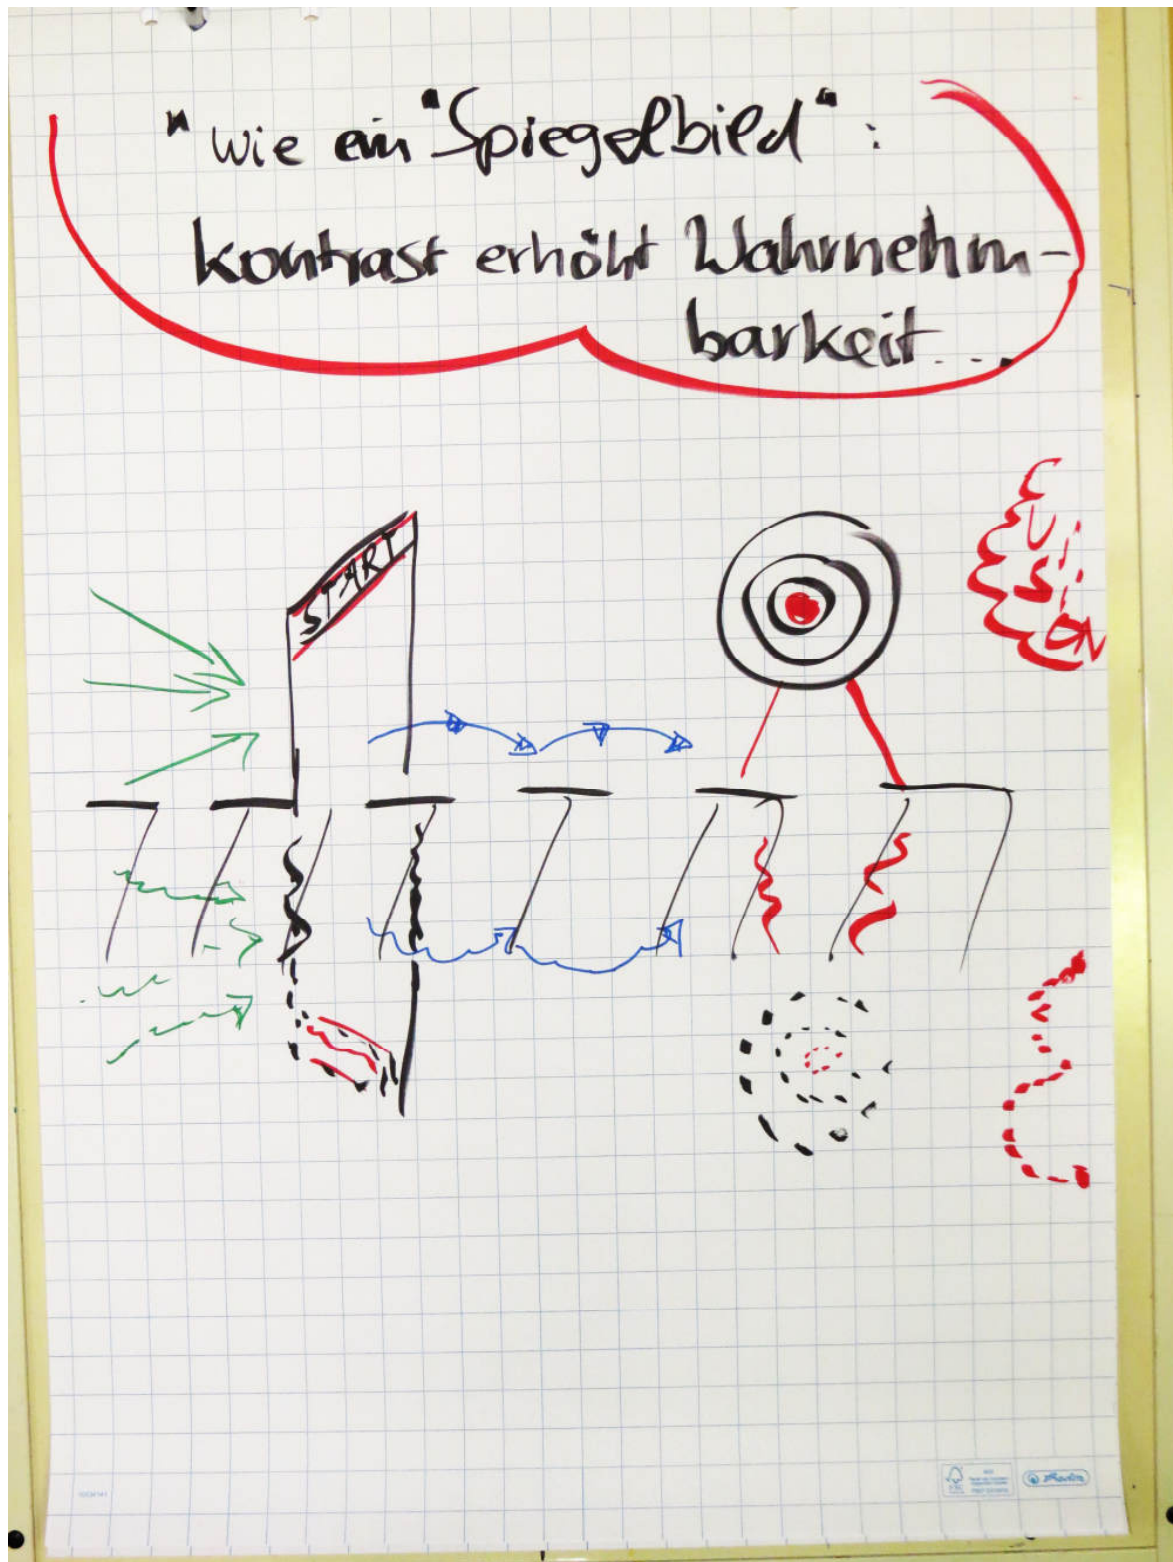 "wie ein "Spiegelbild":
kontrast erhöht Wahrnehm-
barkeit...
START